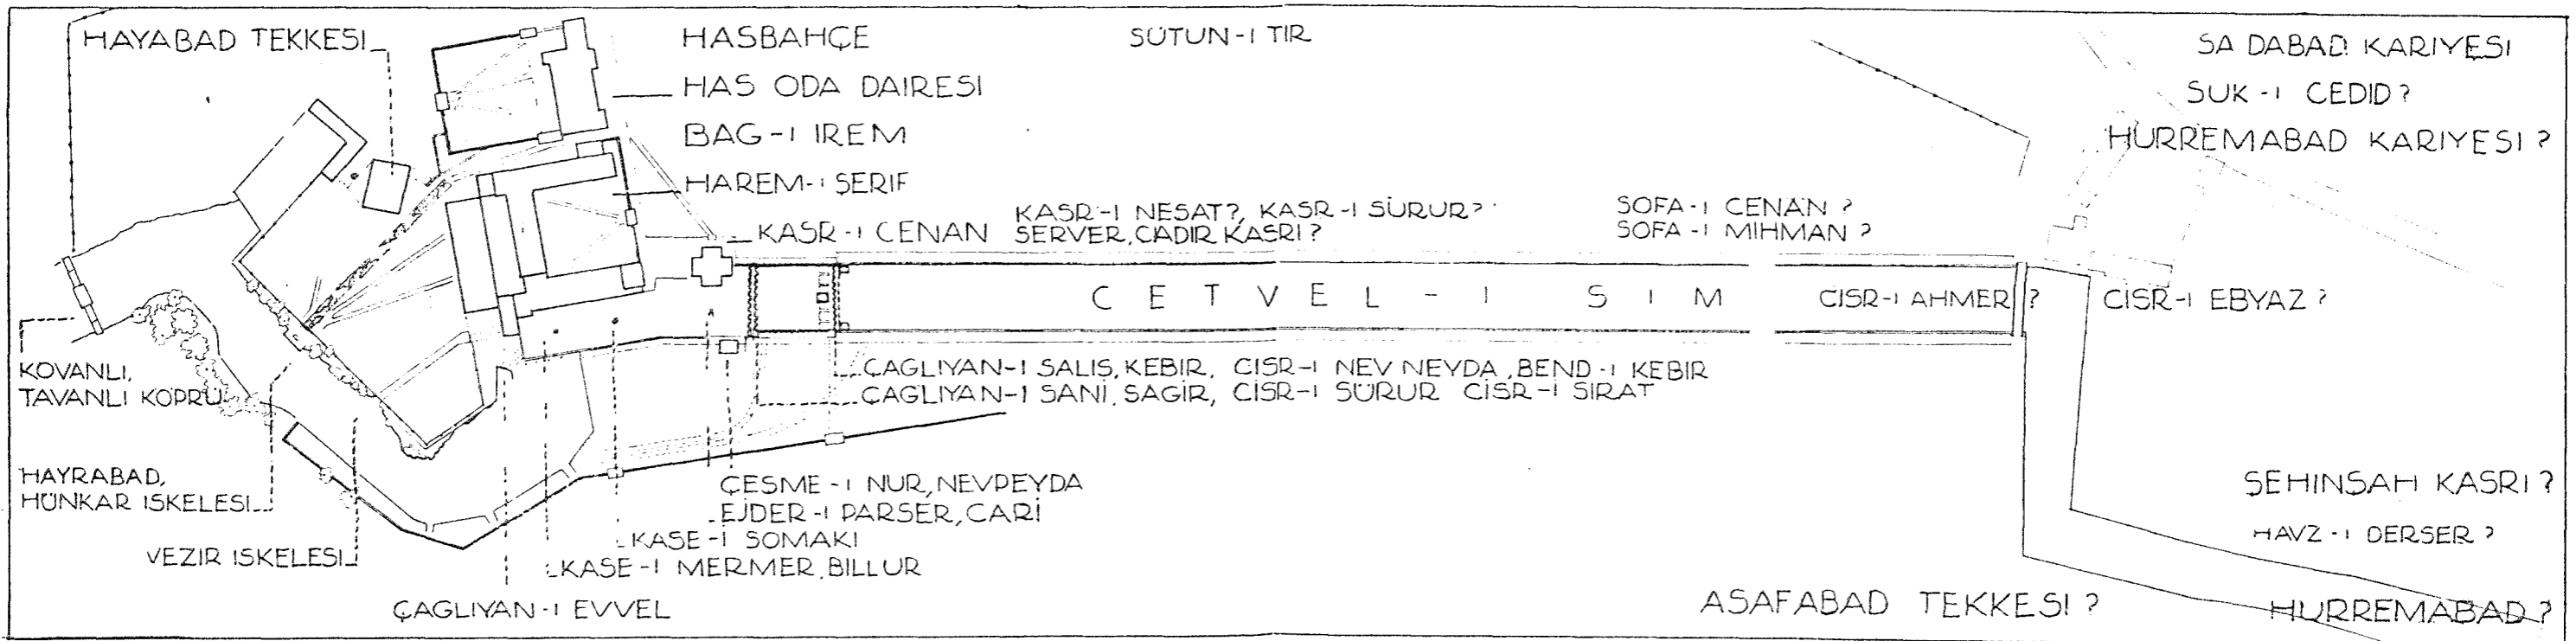 HAYABAD TEKKESI
HASBAHÇE
HAS ODA DAIRESI
BAG-I IREM
HAREM-I ŞERIF
KASR-I CENAN
KASR-I NESAT?, KASR-I SÜRUR?
SERVER, CADIR KASRI?
SÜTUN-I TIR
SOFA-I CENAN ?
SOFA-I MIHMAN ?
SA DABAD KARIYESI
SUK-I CEDID ?
HURREMABAD KARIYESI ?
CETVEL-I SIM
CISR-I AHMER ?
CISR-I EBYAZ ?
KOVANLI,
TAVANLI KÖPRÜ
HAYRABAD,
HÜNKAR ISKELESI
VEZIR ISKELESI
ÇAGLIYAN-I SALIS, KEBIR, CISR-I NEV NEYDA, BEND-I KEBIR
ÇAGLIYAN-I SANİ, SAGİR, CİSR-I SÜRUR CİSR-I SIRAT
ÇESME-I NUR, NEVPEYDA
EJDER-I PARSER, CARİ
KASE-I SOMAKI
KASE-I MERMER, BILLUR
ÇAGLIYAN-I EVVEL
ŞEHINŞAH KASRI ?
HAVZ-I DERSER ?
ASAFABAD TEKKESI ?
HURREMABAD ?